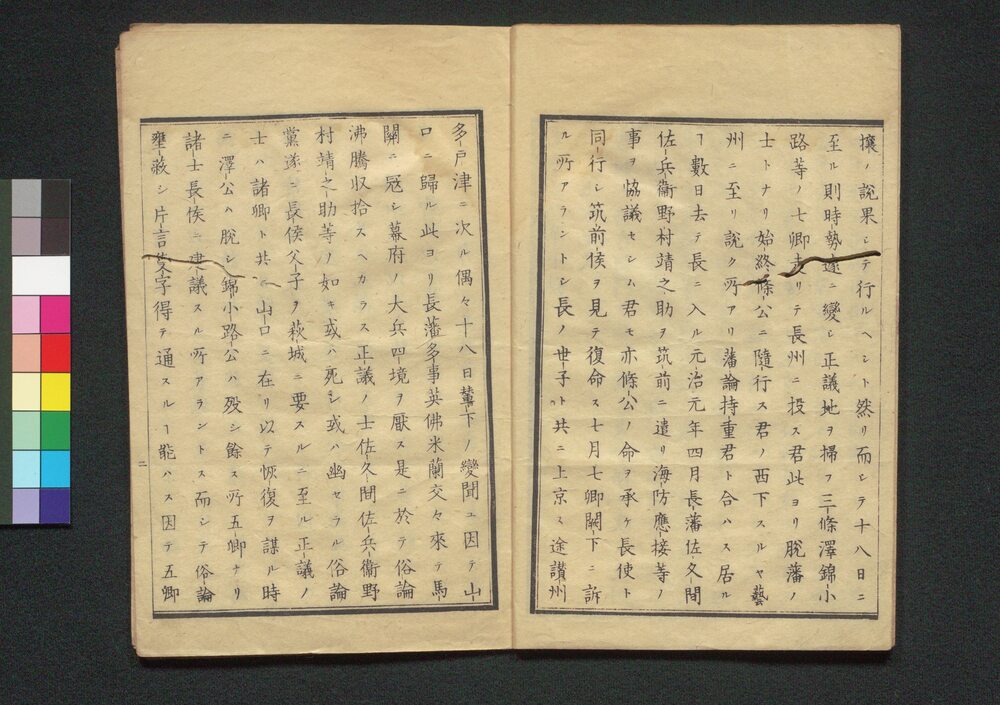 攘ノ説果シテ行ルヘシト然リ而シテ十八日ニ
至ル則時勢遽ニ變シ正議地ヲ掃フ三條澤錦小
路等ノ七卿走リテ長州ニ投ス君此ヨリ脱藩ノ
士トナリ始終條公ニ隨行ス君ノ西下スルヤ藝
州ニ至リ説ク所アリ藩論持重君ト合ハス居ル
ヿ數日去テ長ニ入ル元治元年四月長藩佐久間
佐兵衛野村靖之助ヲ筑前ニ遣リ海防應接等ノ
事ヲ協議セシム君モ亦條公ノ命ヲ承ケ長使ト
同行シ筑前侯ヲ見テ復命ス七月七卿闕下ニ訴
ル所アラントシ長ノ世子ト共ニ上京ス途讃州
多戸津ニ次ル偶々十八日輦下ノ變聞ユ因テ山
口ニ歸ル此ヨリ長藩多事英佛米蘭交々來テ馬
關ニ冦シ幕府ノ大兵四境ヲ厭ス是ニ於テ俗論
沸騰収拾スヘカラス正議ノ士佐久間佐兵衛野
村靖之助等ノ如キ或ハ死シ或ハ幽セラル俗論
黨遂ニ長侯父子ヲ萩城ニ要スルニ至ル正議ノ
士ハ諸卿ト共ニ山口ニ在リ以テ恢復ヲ謀ル時
ニ澤公ハ脱シ錦小路公ハ歿シ餘ス所五卿ナリ
諸士長侯ニ建議スル所アラントス而シテ俗論
壅蔽シ片言隻字得テ通スルヿ能ハス因テ五卿
二